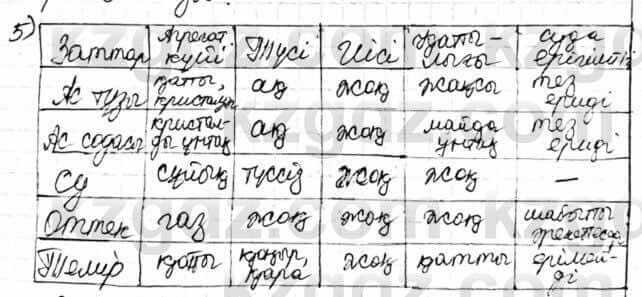 5)
Заттар | Агрегат күйі | Түсі | Иісі | Қатты-лығы | суда ерігіштігі
Ас тұзы | қатты, кристалды | ақ | жоқ | жақсы | тез ериді
Ас содасы | кристал-ды ұнтақ | ақ | жоқ | майда ұнтақ | тез ериді
Су | сұйық | түссіз | жоқ | жоқ | —
Оттек | газ | жоқ | жоқ | жоқ | шабытты
Темір | қатты | қоңыр, қара | жоқ | қатты | ерімей-ді